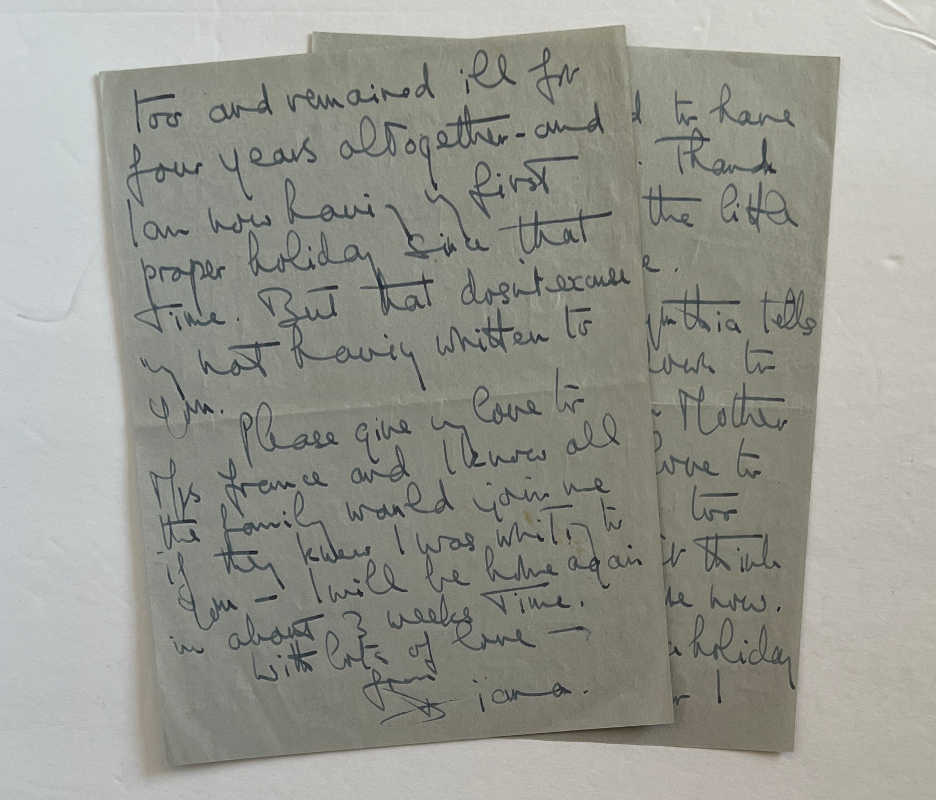 too and remained ill for
four years altogether - and
I am now having my first
proper holiday since that
time. But that dosnt excuse
my not having written to
you.
Please give my love to
Mrs France and I know all
the family would join me
if they knew I was writing to
you - I will be home again
in about 3 weeks time.
with lots of love -
from
Diana.
d to have
. Thank
the little
e.
ynthia tells
down to
Mother
love to
too
think
me now.
holiday
r I